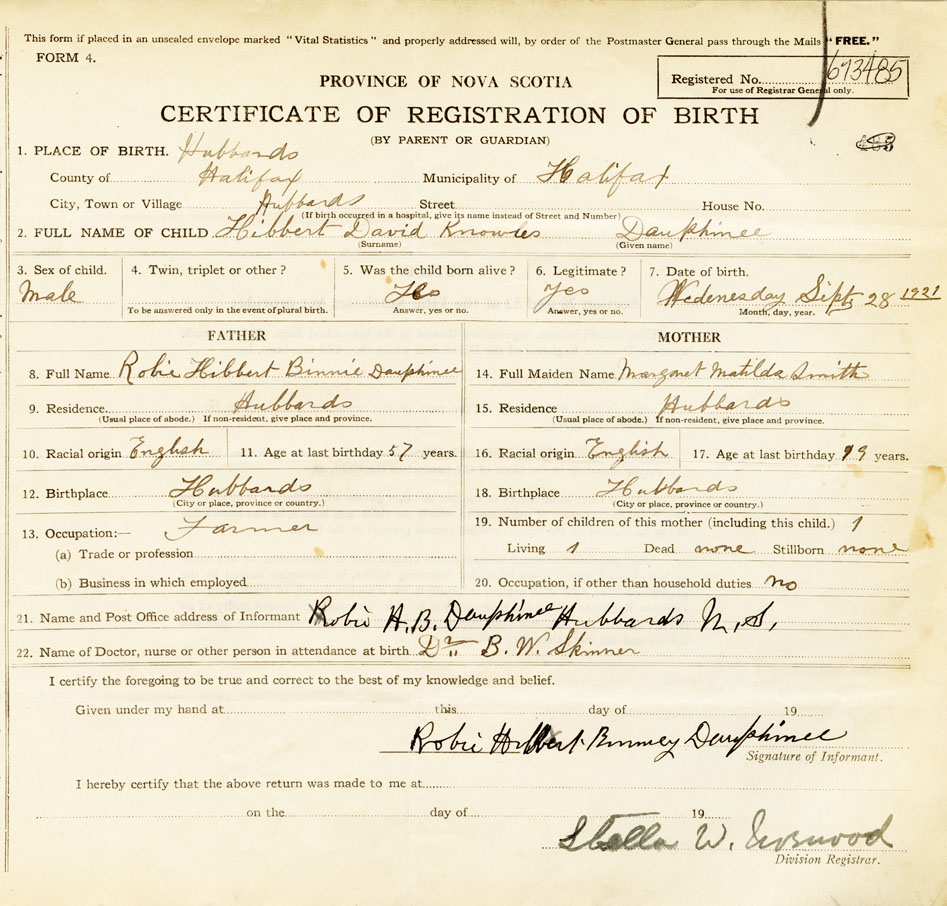 This form if placed in an unsealed envelope marked "Vital Statistics" and properly addressed will, by order of the Postmaster General pass through the Mails "FREE."
FORM 4.
Registered No. 673485
For use of Registrar General only.
PROVINCE OF NOVA SCOTIA
CERTIFICATE OF REGISTRATION OF BIRTH
(BY PARENT OR GUARDIAN)
1. PLACE OF BIRTH. Hubbards
County of Halifax Municipality of Halifax
City, Town or Village Hubbards Street House No.
(If birth occurred in a hospital, give its name instead of Street and Number)
2. FULL NAME OF CHILD Hibbert David Knowles Dauphinee
(Surname) (Given name)
3. Sex of child. 4. Twin, triplet or other? 5. Was the child born alive? 6. Legitimate? 7. Date of birth.
Male Yes Yes Wedenesday Sept 28 1921
To be answered only in the event of plural birth. Answer, yes or no. Answer, yes or no. Month, day, year.
FATHER
8. Full Name Robie Hibbert Binnie Dauphinee
9. Residence Hubbards
(Usual place of abode.) If non-resident, give place and province.
10. Racial origin English 11. Age at last birthday 57 years.
12. Birthplace Hubbards
(City or place, province or country.)
13. Occupation:— Farmer
(a) Trade or profession
(b) Business in which employed
MOTHER
14. Full Maiden Name Margaret Matilda Smith
15. Residence Hubbards
(Usual place of abode.) If non-resident, give place and province.
16. Racial origin English 17. Age at last birthday years.
18. Birthplace Hubbards
(City or place, province or country.)
19. Number of children of this mother (including this child.) 1
Living 1 Dead none Stillborn none
20. Occupation, if other than household duties no
21. Name and Post Office address of Informant Robie H. B. Dauphinee Hubbards N. S.
22. Name of Doctor, nurse or other person in attendance at birth Dr B. W. Skinner
I certify the foregoing to be true and correct to the best of my knowledge and belief.
Given under my hand at this day of 19
Robie Hibbert Binney Dauphinee
Signature of Informant.
I hereby certify that the above return was made to me at
on the day of 19
Stella W. Norwood
Division Registrar.